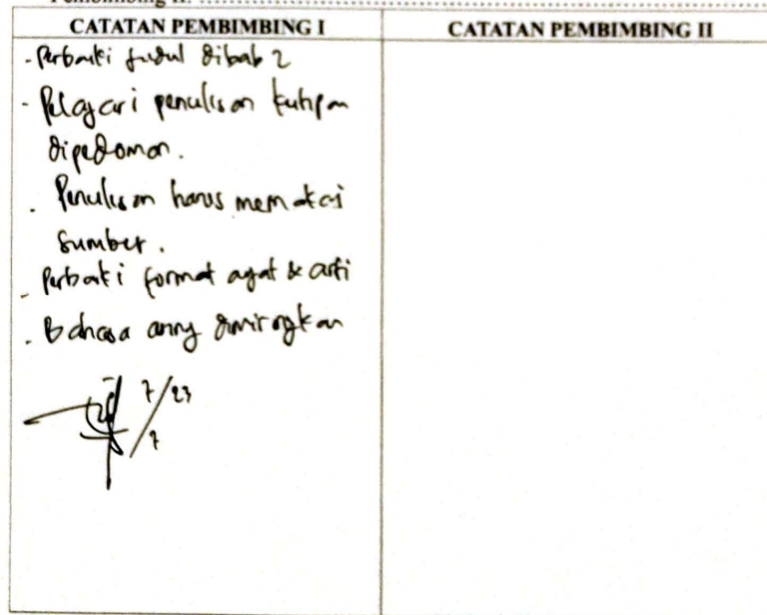 Pembimbing II:
CATATAN PEMBIMBING I
CATATAN PEMBIMBING II
- Perbaiki judul dibab 2
- Pelajari penulisan kutipan
dipedoman.
- Penulisan harus memakai
Sumber.
- Perbaiki format ayat & arti
- Bahasa asing dimiringkan
7/23
7